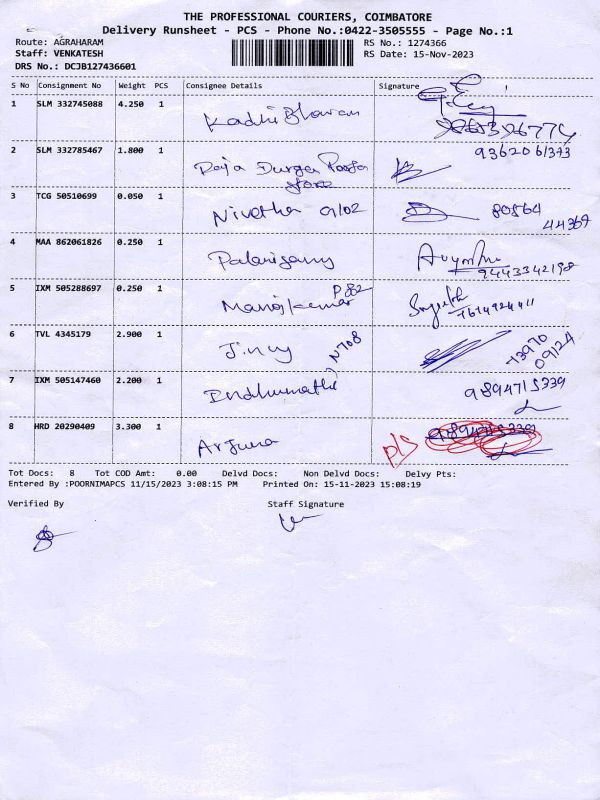 THE PROFESSIONAL COURIERS, COIMBATORE
Delivery Runsheet - PCS - Phone No.:0422-3505555 - Page No.:1
Route: AGRAHARAM RS No.: 1274366
Staff: VENKATESH RS Date: 15-Nov-2023
DRS No.: DCJB127436601
S No Consignment No Weight PCS Consignee Details Signature
1 SLM 332745088 4.250 1 Kadhi Bhavan
2 SLM 332785467 1.800 1 Raja Durga Pooja 9362061373
store
3 TCG 50510699 0.050 1 Nivetha 9102 80564
44369
4 MAA 862061826 0.250 1 Palanisamy
9443342198
5 IXM 505288697 0.250 1 Manojkumar P 882
6 TVL 4345179 2.900 1 Jincy N708 73970
09124
7 IXM 505147460 2.200 1 Indhumathi 9894715339
8 HRD 20290409 3.300 1 Arjuna pls 9894715339
Tot Docs: 8 Tot COD Amt: 0.00 Delvd Docs: Non Delvd Docs: Delvy Pts:
Entered By :POORNIMAPCS 11/15/2023 3:08:15 PM Printed On: 15-11-2023 15:08:19
Verified By Staff Signature